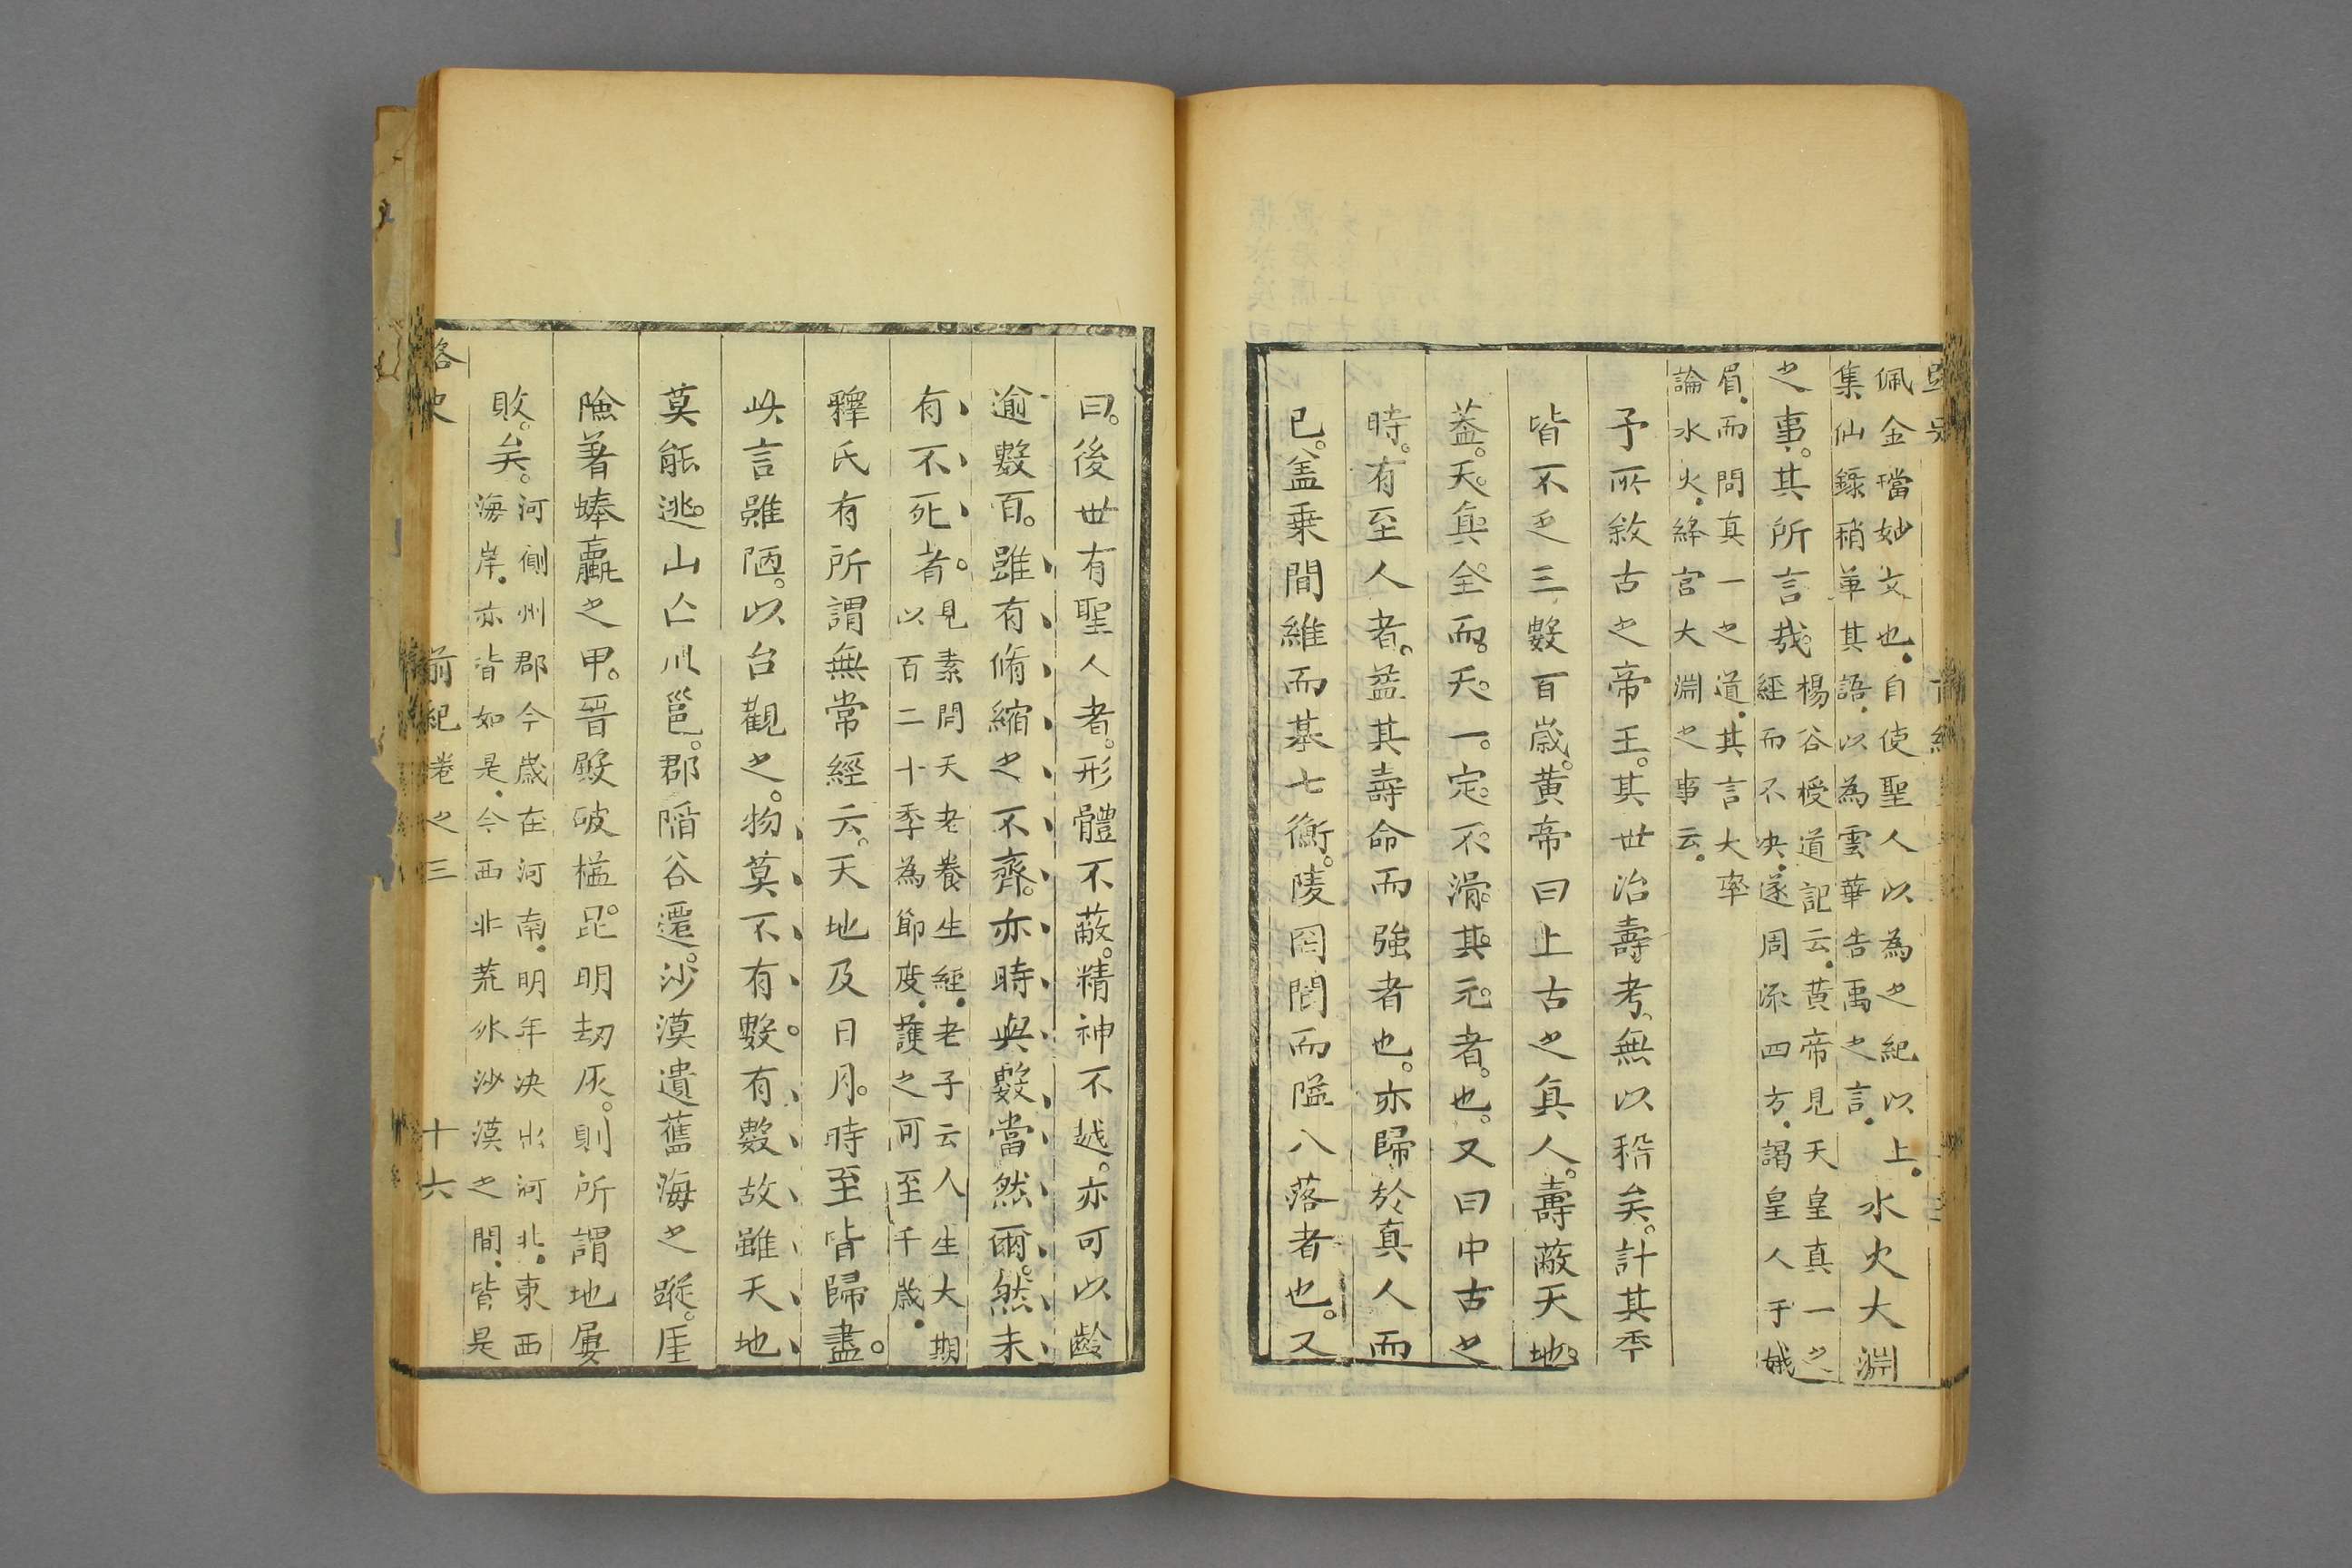 佩金璫妙文也自使聖人以為之紀以上
集仙錄稍革其語以為雲華告禹之言水火大淵
之事其所言哉楊谷授道記云黃帝見天皇真一之
經而不决遂周流四方謁皇人于峨
眉而問真一之道其言大率
論水火絳宮大淵之事云
予所敘古之帝王其世治壽考無以稽矣計其年
皆不乏三數百歲黃帝曰上古之真人壽蔽天地
蓋天真全而天一定不滑其元者也又曰中古之
時有至人者益其壽命而強者也亦歸於真人而
已蓋乗間維而基七衡陵罔閬而隘八落者也又
曰後世有聖人者形體不蔽精神不越亦可以齡
逾數百雖有脩縮之不齊亦時與數當然爾然未
有不死者見素問天老養生經老子云人生大期
以百二十季為節度護之可至千歲
釋氏有所謂無常經云天地及日月時至皆歸盡
此言雖陋以台觀之物莫不有數有數故雖天地
莫能逃山亡川邕郡陷谷遷沙漠遺舊海之蹤厓
險著蜯蠃之甲晉殿破槛昆明刼灰則所謂地屢
敗矣河側州郡今歲在河南明年决出河北東西
海岸亦皆如是今西北荒外沙漠之間皆是
路史 前紀卷之三 十六